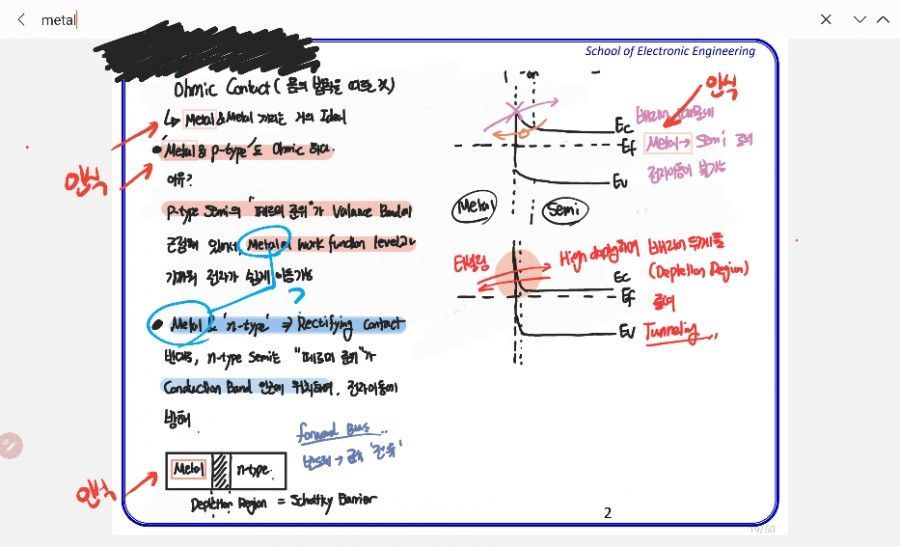 metal
School of Electronic Engineering
Ohmic Contact ( 옴의 법칙을 따르는 것)
↳ Metal & Metal 거의 Ideal
인식
• 'Metal & p-type'도 Ohmic 하다.
이유?
p-type Semi의 "페르미 준위"가 Valance Band에
근접해 있어서, Metal의 work function level과
가까워 전자가 쉽게 이동가능
?
• Metal & 'n-type' ⇒ Rectifying Contact
반대로, n-type Semi는 "페르미 준위"가
Conduction Band 인근에 위치하여, 전자이동에
방해.
forward Bias ..
반도체 → 금속 '전류'
인식
Metal n-type.
Depletion Region = Schottky Barrier
인식
Ec
Ef
Ev
배리어 때문에
Metal → Semi 로의
전자이동이 불가능
Metal Semi
터널링
High doping하여 배리어 두께를
(Depletion Region)
줄여
Tunneling
Ec
Ef
Ev
2
19/80